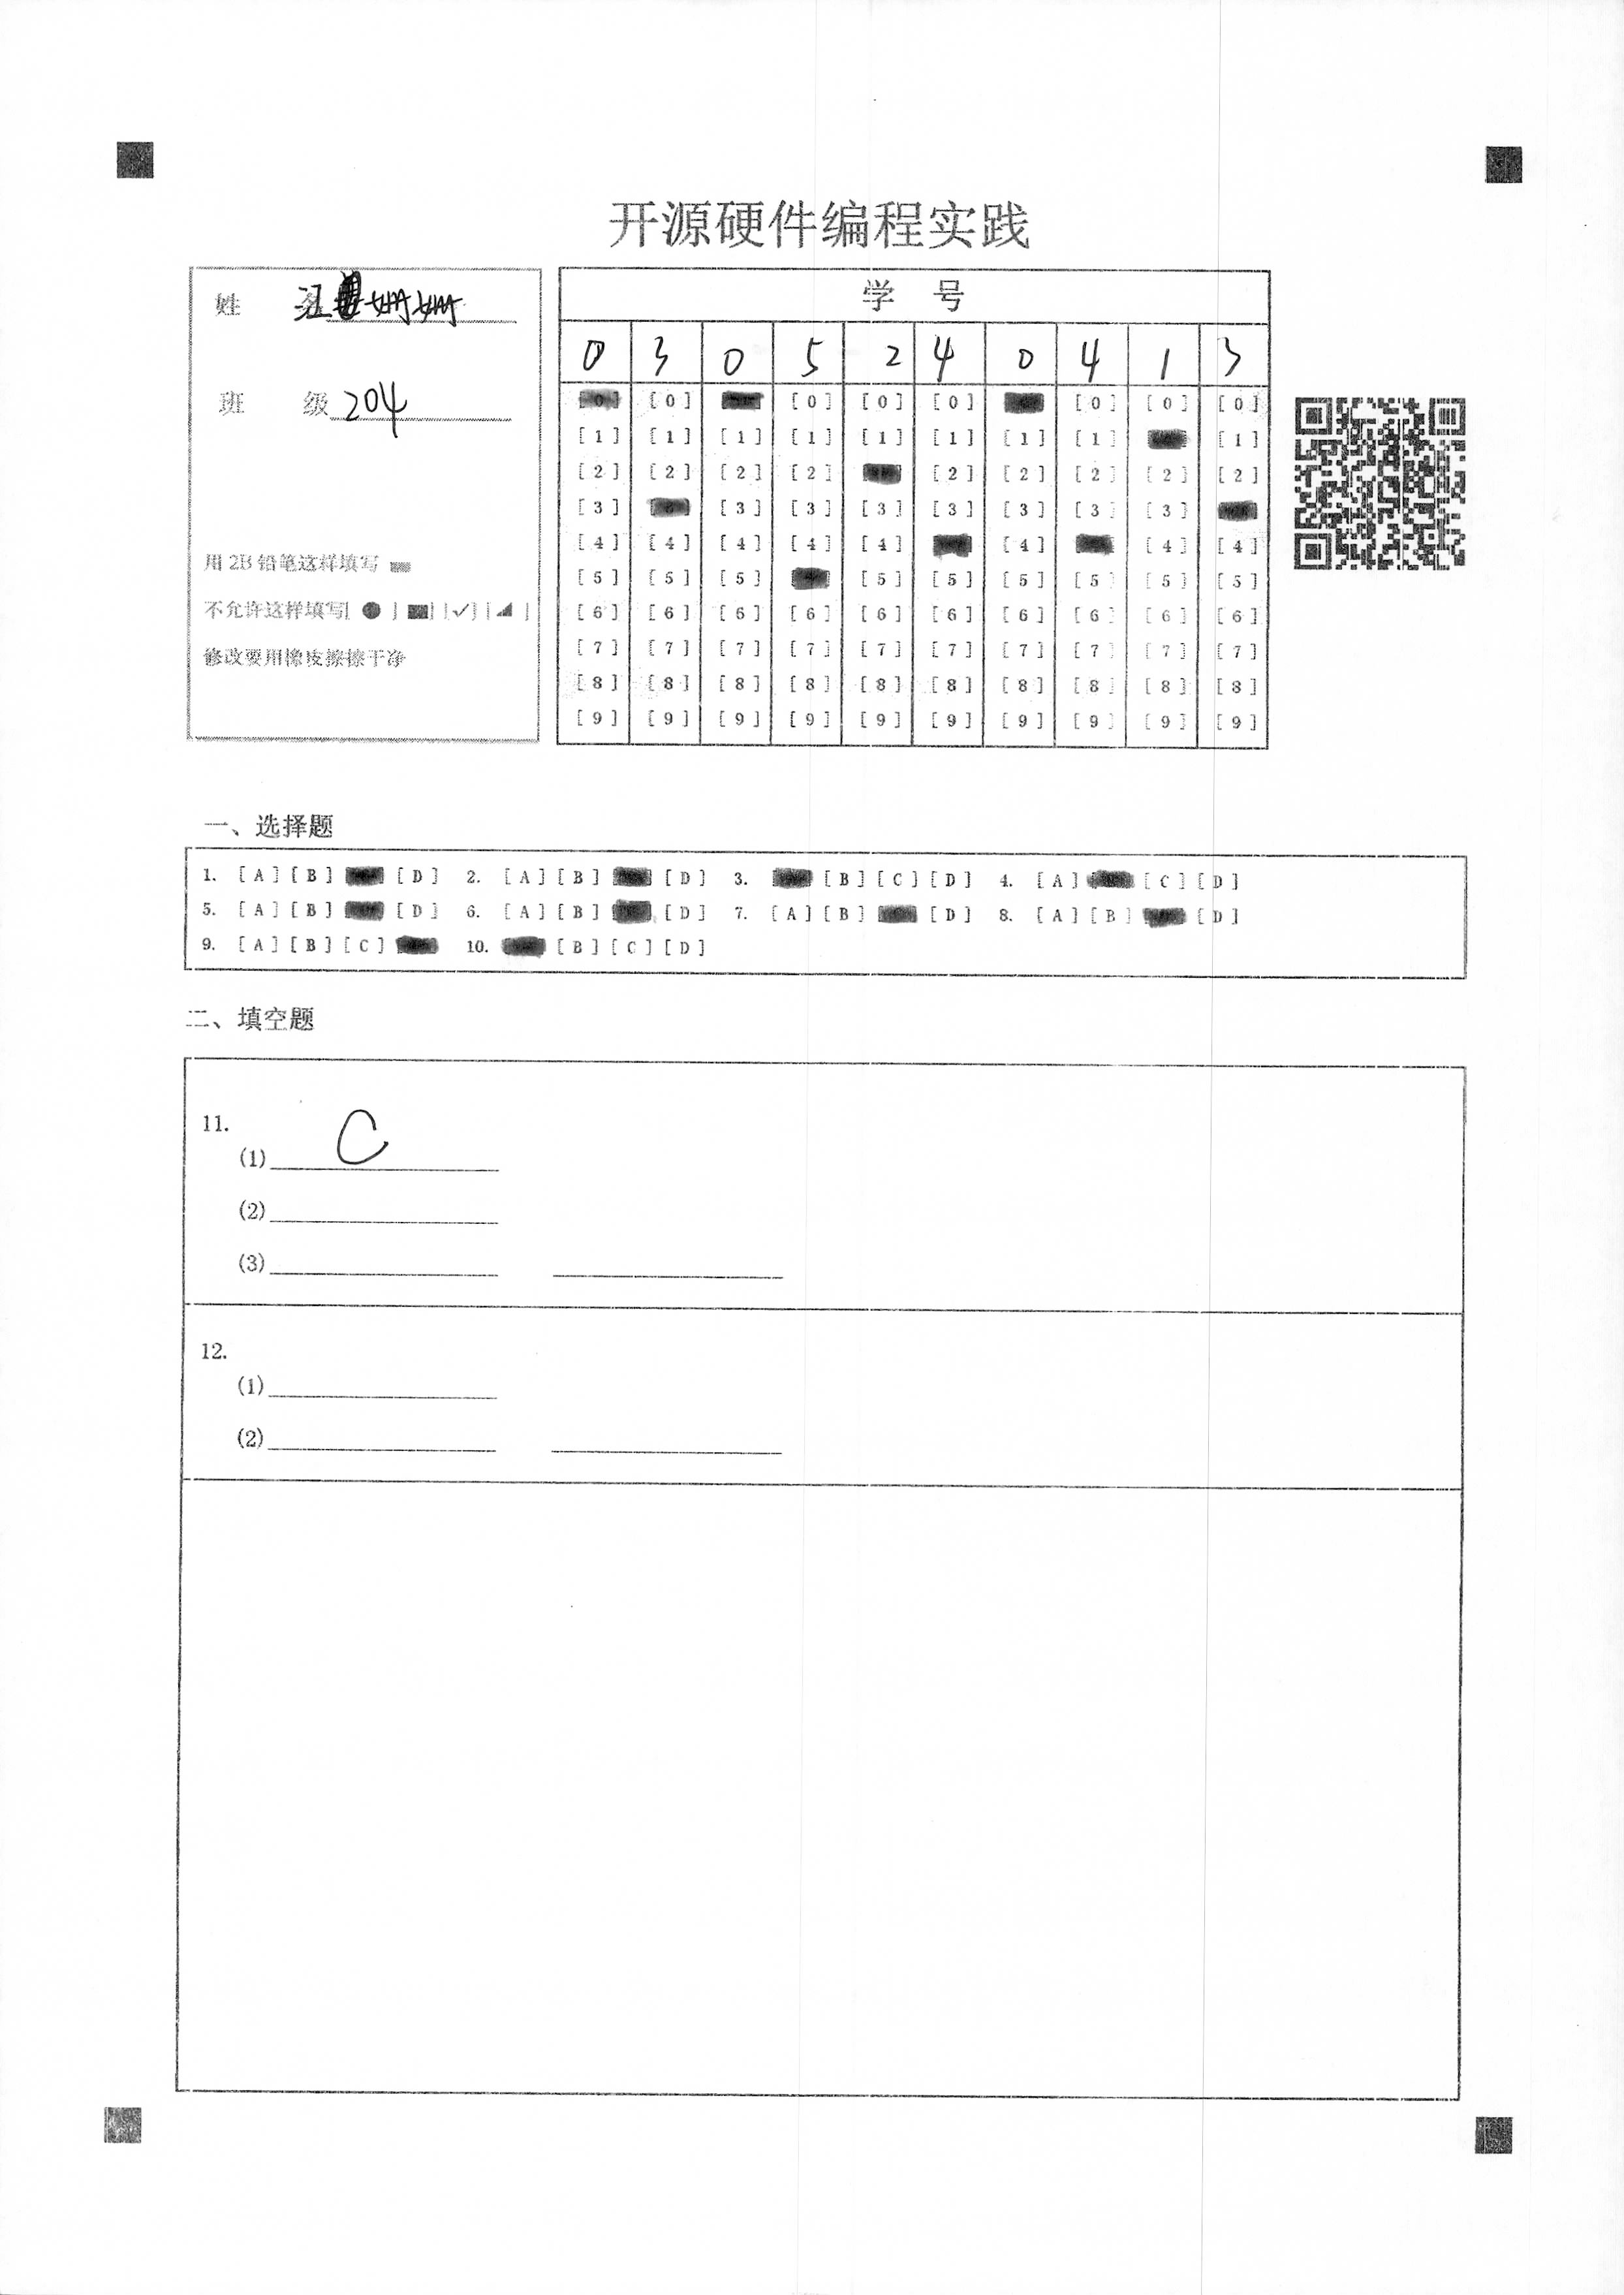 开源硬件编程实践
姓 名 江姗姗
班 级 204
用 2B 铅笔这样填写
不允许这样填写[ ● ] [■] [✓] [◢ ]
修改要用橡皮擦擦干净
学 号
0 3 0 5 2 4 0 4 1 3
[0] [0] [0] [0] [0] [0] [0] [0]
[1] [1] [1] [1] [1] [1] [1] [1] [1]
[2] [2] [2] [2] [2] [2] [2] [2] [2]
[3] [3] [3] [3] [3] [3] [3] [3]
[4] [4] [4] [4] [4] [4] [4] [4]
[5] [5] [5] [5] [5] [5] [5] [5] [5]
[6] [6] [6] [6] [6] [6] [6] [6] [6] [6]
[7] [7] [7] [7] [7] [7] [7] [7] [7] [7]
[8] [8] [8] [8] [8] [8] [8] [8] [8] [8]
[9] [9] [9] [9] [9] [9] [9] [9] [9] [9]
一、选择题
1. [A] [B] [D] 2. [A] [B] [D] 3. [B] [C] [D] 4. [A] [C] [D]
5. [A] [B] [D] 6. [A] [B] [D] 7. [A] [B] [D] 8. [A] [B] [D]
9. [A] [B] [C] 10. [B] [C] [D]
二、填空题
11.
(1) C
(2)
(3)
12.
(1)
(2)